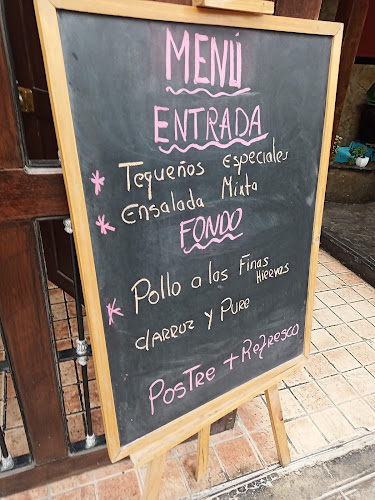 MENÚ
ENTRADA
* Tequeños Especiales
* Ensalada Mixta
FONDO
* Pollo a las Finas Hiervas
c/arroz y Pure
Postre + Refresco